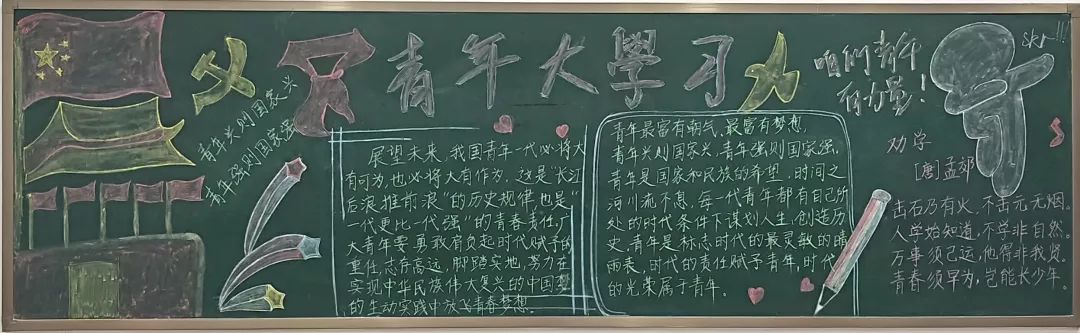 青年大學习
青年兴则国家兴
青年强则国家强
展望未来，我国青年一代必将大
有可为，也必将大有作为，这是“长江
后浪推前浪”的历史规律，也是“
一代更比一代强”的青春责任，广
大青年要勇敢肩负起时代赋予的
重任，志存高远，脚踏实地，努力在
实现中华民族伟大复兴的中国梦
的生动实践中放飞青春梦想。
青年最富有朝气，最富有梦想，
青年兴则国家兴，青年强则国家强。
青年是国家和民族的希望，时间之
河川流不息，每一代青年都有自己所
处的时代条件下谋划人生、创造历
史，青年是标志时代的最灵敏的晴
雨表，时代的责任赋予青年，时代
的光荣属于青年。
咱们青年
有力量！
skr!!!
劝学
[唐]孟郊
击石乃有火，不击元无烟。
人学始知道，不学非自然。
万事须己运，他得非我贤。
青春须早为，岂能长少年。